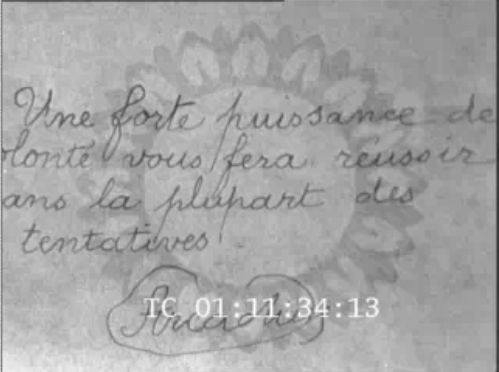 Une forte puissance de
olonté vous fera réussir
ans la plupart des
tentatives
TC 01:11:34:13